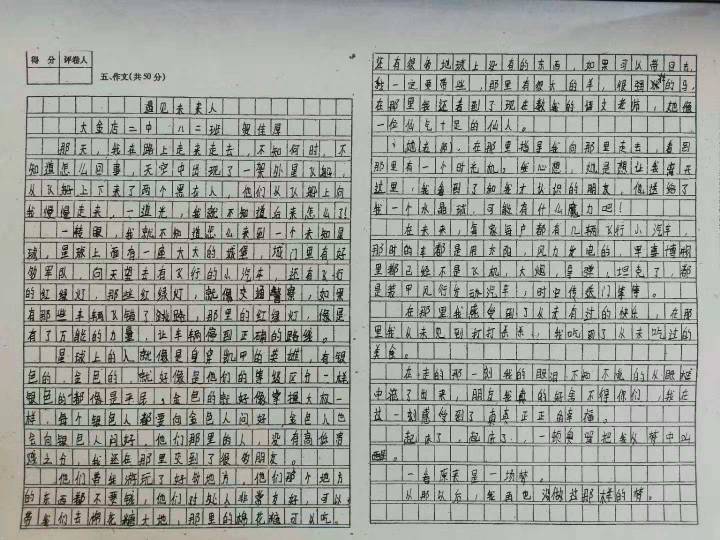 得 分 评卷人
五、作文(共50分)
遇见未来人
大金店二中 八二班 贺佳厚
那天,我在路上走来走去,不知何时,不
知道怎么回事,天空中出现了一架外星飞船,
从飞船上下来了两个黑衣人,他们从飞船上向
我慢慢走来,一道光,我就不知道后来怎么了!
一转眼,我就不知道怎么来到一个未知星
球,星球上面有一座大大的城堡,城门里有好
多军队,向天望去有飞行的小汽车,还有飞行
的红绿灯,那些红绿灯,就像交通警察,如果
有那些车辆飞错了线路,那里的红绿灯,像是
有了万能的力量,让车辆停到正确的路线。
星球上的人就像是身穿凯甲的英雄,有银
色的,金色的,就好像是他们的等级区分一样
银色的都像是平民,金色的就好像掌握大权一
样,每个银色人都要向金色人问好,金色人也
会向银色人问好,他们那里的人,没有高低贵
贱之分,我还在那里交到了很多朋友。
他们带我游玩了好多地方,他们那个地方
的东西都不要钱,他们对外人非常友好,可以
带我们去棉花糖大地,那里的棉花糖可以吃。
还有很多地球上没有的东西,如果可以带回去,
我一定要带些,那里有很大的羊,很强壮的马,
在那里我还看到了现在教我的语文老师,她像
一位仙气十足的仙人。
她在那,在那里指星我向那里走去,看到
那里有一个时光机,我心想,她是想让我离开
这里,我看到了和我才认识的朋友,他送给了
我一个水晶球,可能有什么魔力吧!
在未来,每家每户都有几辆飞行小汽车,
那时的车都是用太阳,风力发电的,军事博物
里都已经不是飞机,大炮,导弹,坦克了,都
是装甲风行发动汽车,时空传送门等等。
在那里我感受到了从未有过的快乐,在那
里我从未见到打打杀杀,我吃到了从未吃过的
美食。
在走的那一刻我的眼泪不知不觉的从眼眶
中流了出来,朋友我真的好舍不得你们,我在
这一刻感受到了真真正正的幸福。
起床了,起床了,一顿臭骂把我从梦中叫
醒。
一看原来是一场梦。
从那以后,我再也没做过那样的梦。